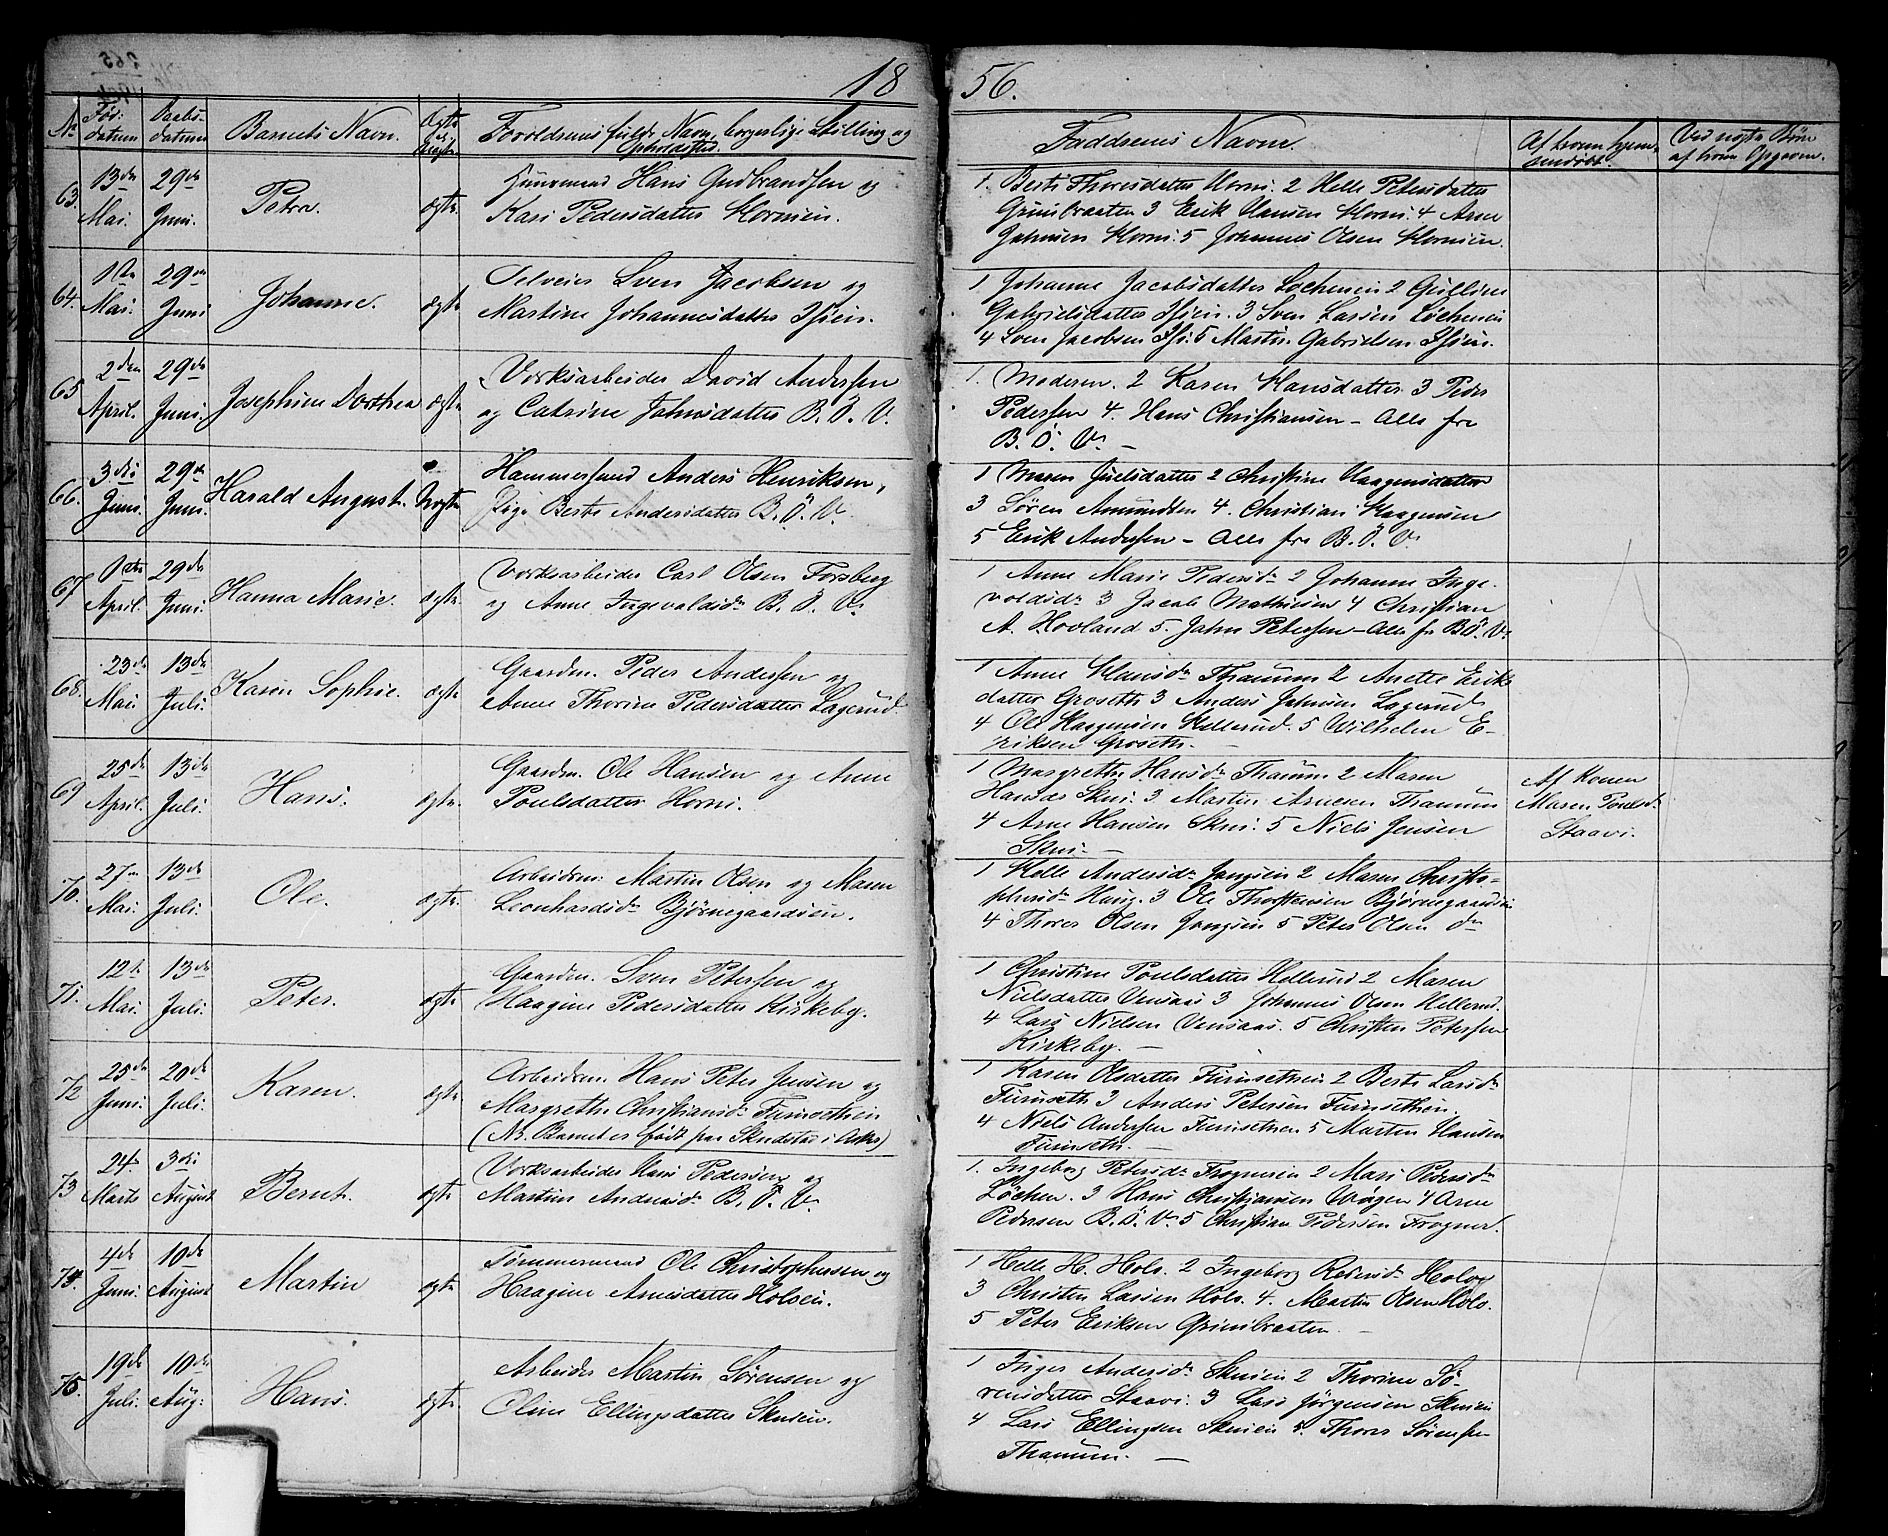 18
56.
No
Føds:
datum
Daabs-
datum
Barnets Navn.
Ægte
el.
Uægte
Forældrenes fulde Navn, borgerlige Stilling og
Opholdsted.
Faddrenes Navne.
Af hvem hjem-
mendøbt.
63.
13de
Mai.
29de
Juni.
Petra.
ægte
Huusmand Hans Gudbrandsen og
Kari Pedersdatter Hornien.
1. Berte Thoresdatter Horni. 2 Helle Petersdatter
Grinibraaten 3 Erik Hansen Horni. 4 Arne
Jahnsen Horni. 5 Johannes Olsen Hornien.
64.
1ste
Mai.
29de
Juni
Johanne.
ægte
Sven Jacobsen og
Martine Johannesdatter
1 Johanne Jacobsdatter Løchenein 2 Gulline
Gabrielsdatter 3 Sven Larsen Løchenein
4 Sven Jacobsen 5 Martin Gabrielsen
65
2den
April.
29de
Juni.
Josephine Dorthea
ægte
Værksarbeider David Andersen
og Catrine Jahnsdatter B. Ö. V.
1. Moderen. 2 Karen Hansdatter. 3 Peder
Pedersen 4. Hans Christiansen – Alle fra
B. Ö. V. –
66.
3die
Juni.
29de
Juni.
Harald August.
Uægte
Hammersmed Anders Henriksen,
Pige Berte Andersdatter B. Ö. V.
1 Maren Juelsdatter 2 Christine Haagensdatter
3 Søren Amundsen 4. Christian Haagensen
5 Erik Andersen – Alle fra B. Ö. V.
67.
April.
29de
Juni.
Hanna Marie.
ægte.
Værksarbeider Carl Olsen Forsberg
og Anne Ingevaldsdr B. Ö. V.
1 Anne Marie Pedersdr 2 Johanne Inge-
valdsdr 3 Jacob Mathiesen 4 Christian
A. Hovland 5. Jahn Petersen – Alle fr B Ö. V.
68.
23de
Mai
13de
Juli.
Karen Sophie.
ægte
Gaardm. Peder Andersen og
Anne Thorine Pedersdatter Lagerud.
1 Anne Hansdr Thanum 2 Anette Erik-
datter Groseth 3 Anders Jahnsen Lagerud
4 Ole Haagensen Hellerud. 5 Wilhelm E-
riksen Groseth. –
69
25de
April.
13de
Juli.
Hans.
ægte.
Gaardm. Ole Hansen og Anne
Poulsdatter Horni.
1 Margrethe Hansdr Thanum 2 Maren
Hansdr Skui. 3 Martin Arnesen Thanum
4 Arne Hansen Skui. 5 Niels Jensen
Skui. –
Af Konen
Maren Poulsdr
Staavi.
70.
27de
Mai.
13de
Juli.
Ole.
ægte.
Arbeidsm. Martin Olsen og Maren
Leonhardsdr Bjørnegaardseien.
1 Helle Andersdr Jongsein 2 Maren Christo-
phersdr Haug. 3 Ole Thorstensen Bjørnegaardsein
4 Thores Olsen Jongsein 5 Peter Olsen do
71.
12te
Mai.
13de
Juli.
Peter.
ægte
Gaardm. Sven Petersen og
Haagine Pedersdatter Kirkeby.
1 Christine Poulsdatter Hellerud 2 Maren
Nielsdatter Vensaas 3 Johannes Olsen Hellerud.
4 Lars Nielsen Vensaas. 5 Christen Petersen
Kirkeby. –
72
25de
Juni.
20de
Juli.
Karen.
ægte
Arbeidsm. Hans Peter Jensen og
Margrethe Christiansdr Furusetheien
(NB. Barnet er født paa Skudstad i Asker)
1 Karen Olsdatter Furusetheien 2 Berte Larsdr
Furuseth 3 Anders Petersen Furusetheien.
4 Niels Andersen Furusetheien 5 Martin Hansen
Furuseth. –
73
24.
Marts
3die
August
Bernt.
ægte
Værksarbeider Hans Pedersen og
Martine Andersdr B. Ö. V.
1. Ingeborg Petersdr Frogneren 2 Mari Pedersdr
Løchen. 3 Hans Christiansen Wøyen 4 Arne
Pedersen B. Ö. V. 5 Christian Pedersen Frogner.
74.
4de
Juni.
10de
August
Martin
ægte
Tømmermand Ole Christophersen og
Haagine Arnesdatter Holsein.
1 Helle H. Hols. 2 Ingeborg
3 Christen Larsen Hols. 4. Martin Olsen Hols.
5 Peter Eriksen Grinibraaten. –
75.
19de
Juli.
10de
Aug:
Hans.
ægte.
Arbeider Martin Sørensen og
Oline Ellingsdatter Skuiein.
1 Inger Andersdr Skuiein 2 Thorine Sø-
rensdatter Staavi. 3 Lars Jørgensen Skuiein
4 Lars Ellingsen Skuiein 4. Thores Sørensen
Thanum. –